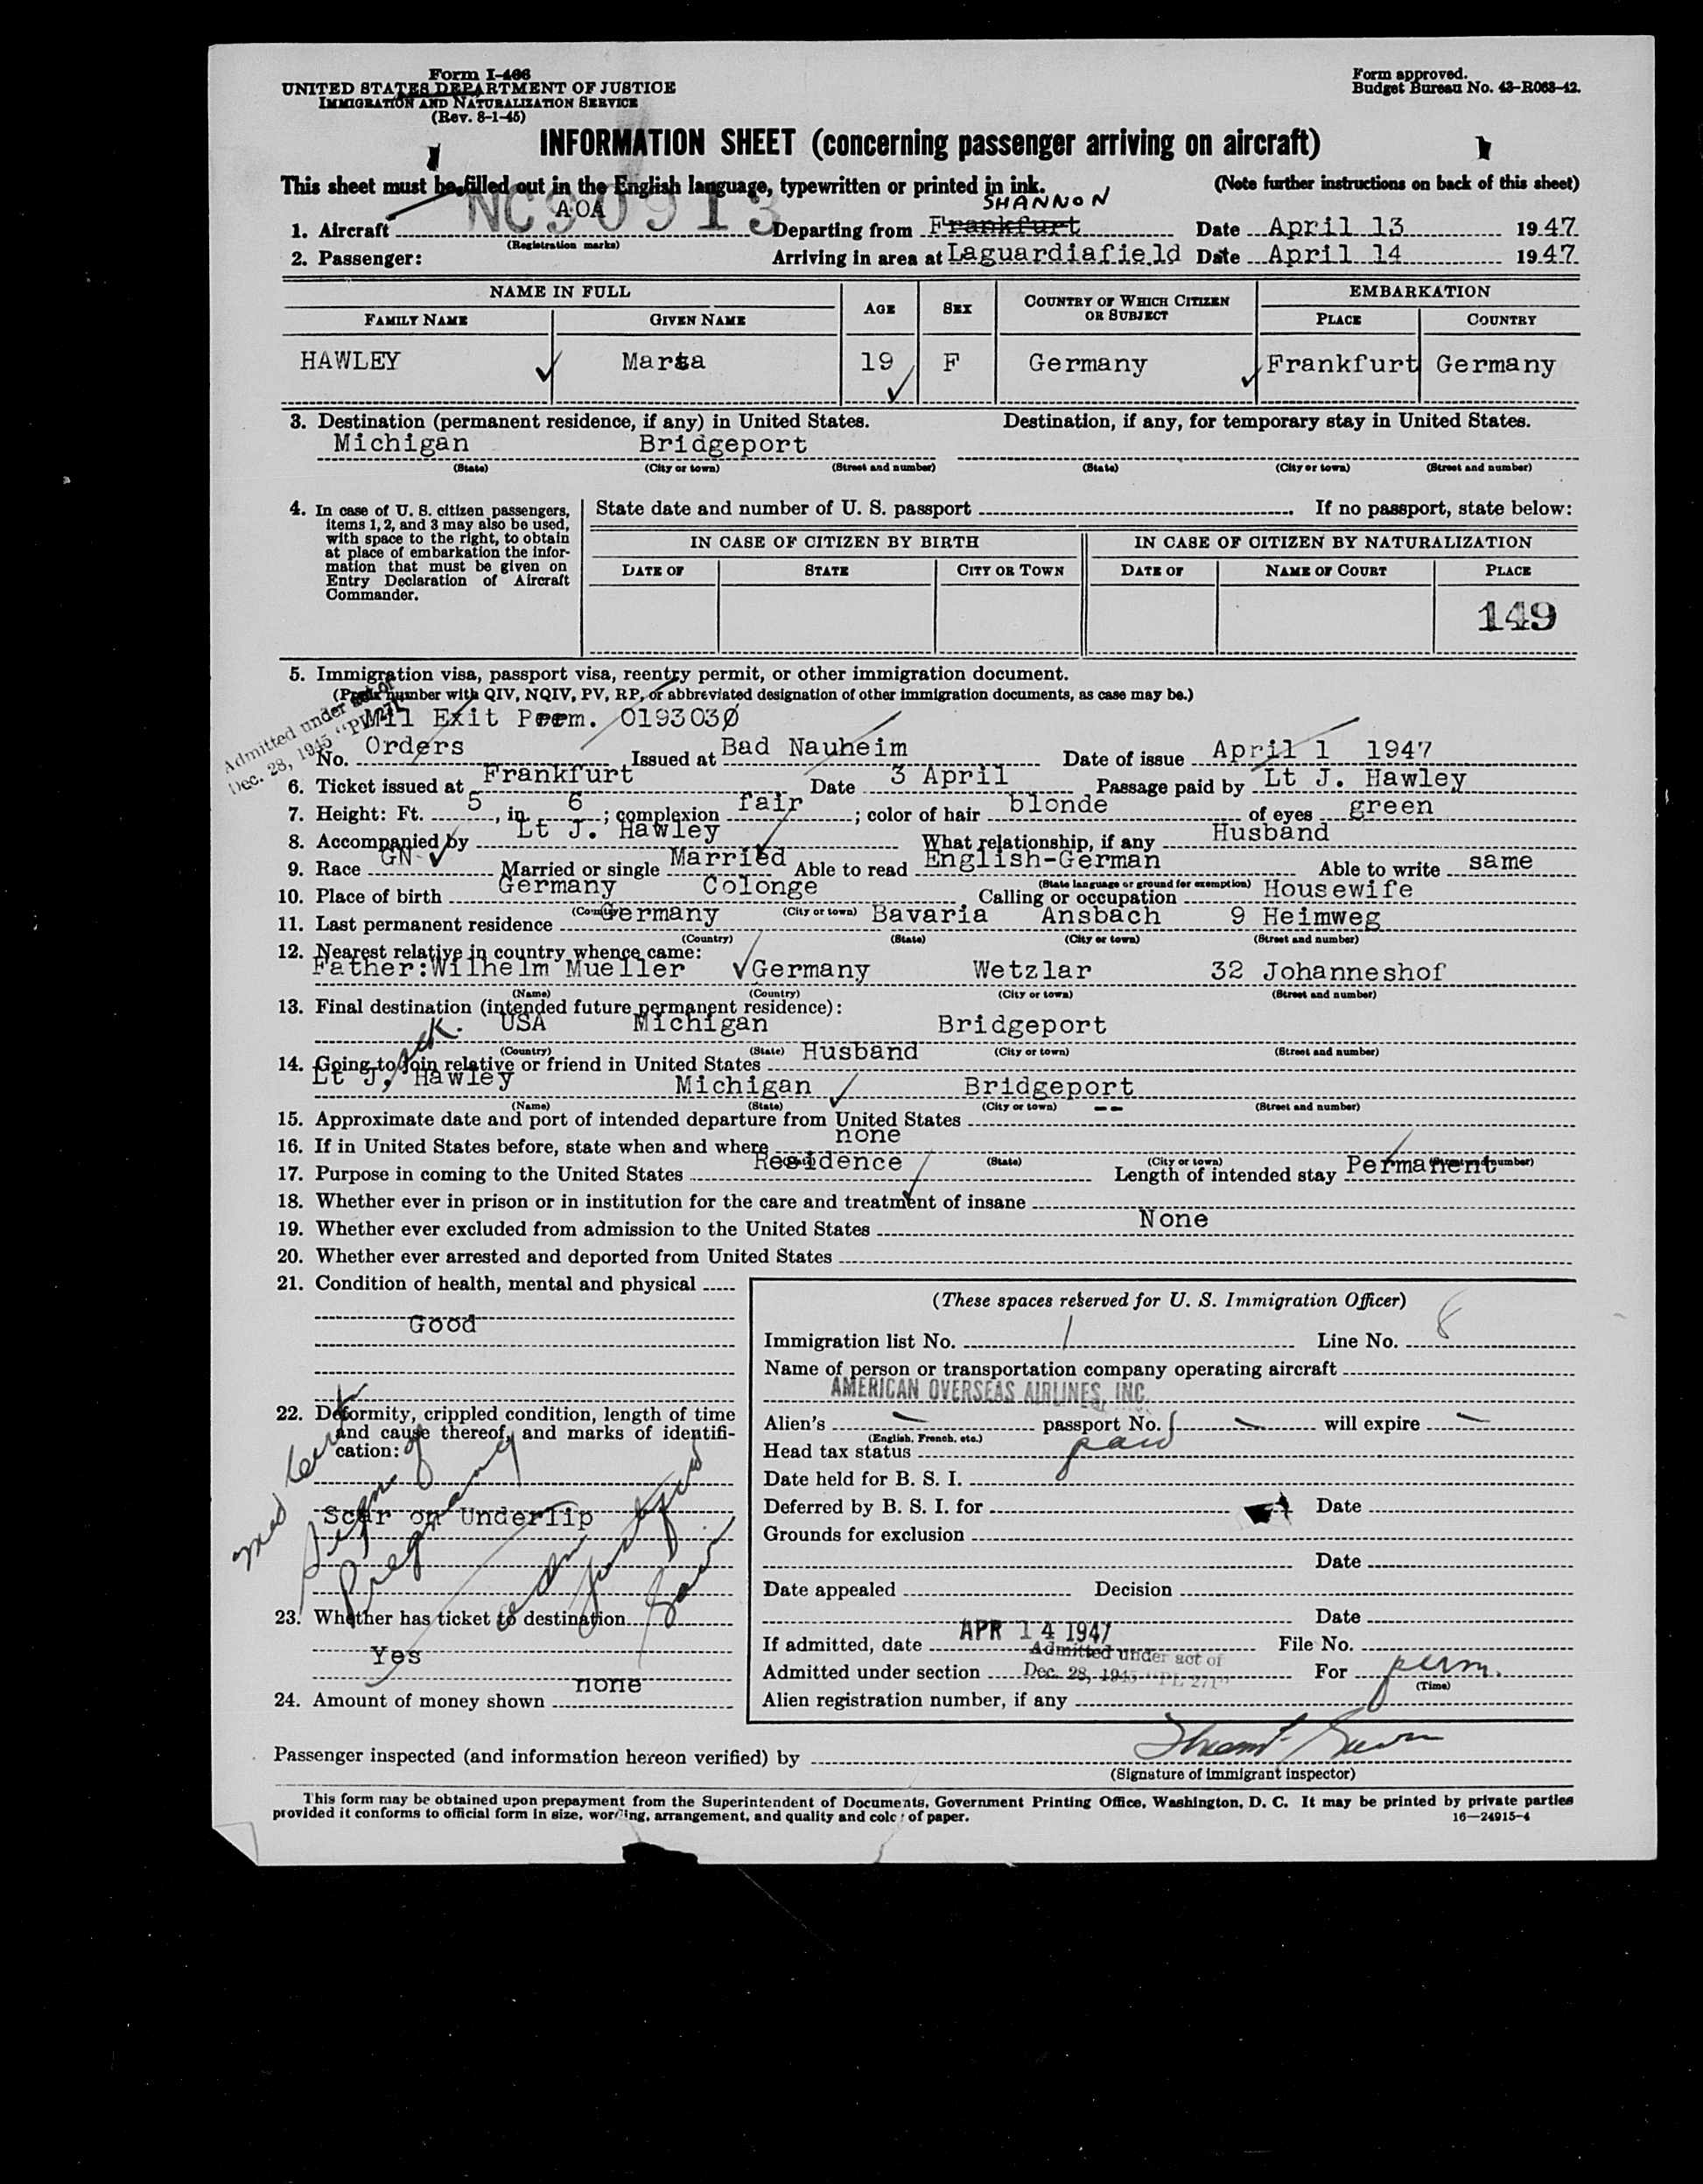 Form I-466
UNITED STATES DEPARTMENT OF JUSTICE
IMMIGRATION AND NATURALIZATION SERVICE
(Rev. 8-1-45)
Form approved.
Budget Bureau No. 43-R063-42.
INFORMATION SHEET (concerning passenger arriving on aircraft)
This sheet must be filled out in the English language, typewritten or printed in ink. (Note further instructions on back of this sheet)
NC90913 AOA SHANNON
1. Aircraft Departing from Frankfurt Date April 13 1947
(Registration marks)
2. Passenger: Arriving in area at Laguardiafield Date April 14 1947
NAME IN FULL AGE SEX COUNTRY OF WHICH CITIZEN OR SUBJECT EMBARKATION
FAMILY NAME GIVEN NAME PLACE COUNTRY
HAWLEY 19 F Germany Frankfurt Germany
3. Destination (permanent residence, if any) in United States. Destination, if any, for temporary stay in United States.
Michigan Bridgeport
(State) (City or town) (Street and number) (State) (City or town) (Street and number)
4. In case of U. S. citizen passengers, items 1, 2, and 3 may also be used, with space to the right, to obtain at place of embarkation the information that must be given on Entry Declaration of Aircraft Commander.
State date and number of U. S. passport If no passport, state below:
IN CASE OF CITIZEN BY BIRTH IN CASE OF CITIZEN BY NATURALIZATION
DATE OF STATE CITY OR TOWN DATE OF NAME OF COURT PLACE
149
5. Immigration visa, passport visa, reentry permit, or other immigration document.
(Prefix number with QIV, NQIV, PV, RP, or abbreviated designation of other immigration documents, as case may be.)
Admitted under act of
Dec. 28, 1945 "PL 271"
Mil Exit Perm. 0193030
No. Orders Issued at Bad Nauheim Date of issue April 1 1947
6. Ticket issued at Frankfurt Date 3 April Passage paid by Lt J. Hawley
7. Height: Ft. 5, in. 6; complexion fair; color of hair blonde of eyes green
8. Accompanied by Lt J. Hawley What relationship, if any Husband
9. Race GN Married or single Married Able to read English-German Able to write same
(State language or ground for exemption)
10. Place of birth Germany Colonge Calling or occupation Housewife
(Country) (City or town)
11. Last permanent residence Germany Bavaria Ansbach 9 Heimweg
(Country) (State) (City or town) (Street and number)
12. Nearest relative in country whence came:
Father:Wilhelm Mueller Germany Wetzlar 32 Johanneshof
(Name) (Country) (City or town) (Street and number)
13. Final destination (intended future permanent residence):
USA Michigan Bridgeport
(Country) (State) (City or town) (Street and number)
14. Going to join relative or friend in United States Husband
Lt J. Hawley Michigan Bridgeport
(Name) (State) (City or town) (Street and number)
15. Approximate date and port of intended departure from United States --
16. If in United States before, state when and where none
(State) (City or town) (Street and number)
17. Purpose in coming to the United States Residence Length of intended stay Permanent
18. Whether ever in prison or in institution for the care and treatment of insane
19. Whether ever excluded from admission to the United States None
20. Whether ever arrested and deported from United States
21. Condition of health, mental and physical
Good
22. Deformity, crippled condition, length of time and cause thereof, and marks of identification:
Scar on Underlip
Med Cert
Signs of
Pregnancy
23. Whether has ticket to destination
Yes
24. Amount of money shown none
(These spaces reserved for U. S. Immigration Officer)
Immigration list No. 1 Line No. 8
Name of person or transportation company operating aircraft
AMERICAN OVERSEAS AIRLINES, INC.
Alien's passport No. will expire
(English, French, etc.)
Head tax status paid
Date held for B. S. I.
Deferred by B. S. I. for Date
Grounds for exclusion
Date
Date appealed Decision
Date
If admitted, date APR 14 1947 File No.
Admitted under section Admitted under act of Dec. 28, 1945 "PL 271" For perm.
(Time)
Alien registration number, if any
Passenger inspected (and information hereon verified) by
(Signature of immigrant inspector)
This form may be obtained upon prepayment from the Superintendent of Documents, Government Printing Office, Washington, D. C. It may be printed by private parties
provided it conforms to official form in size, wording, arrangement, and quality and color of paper. 16—24915-4